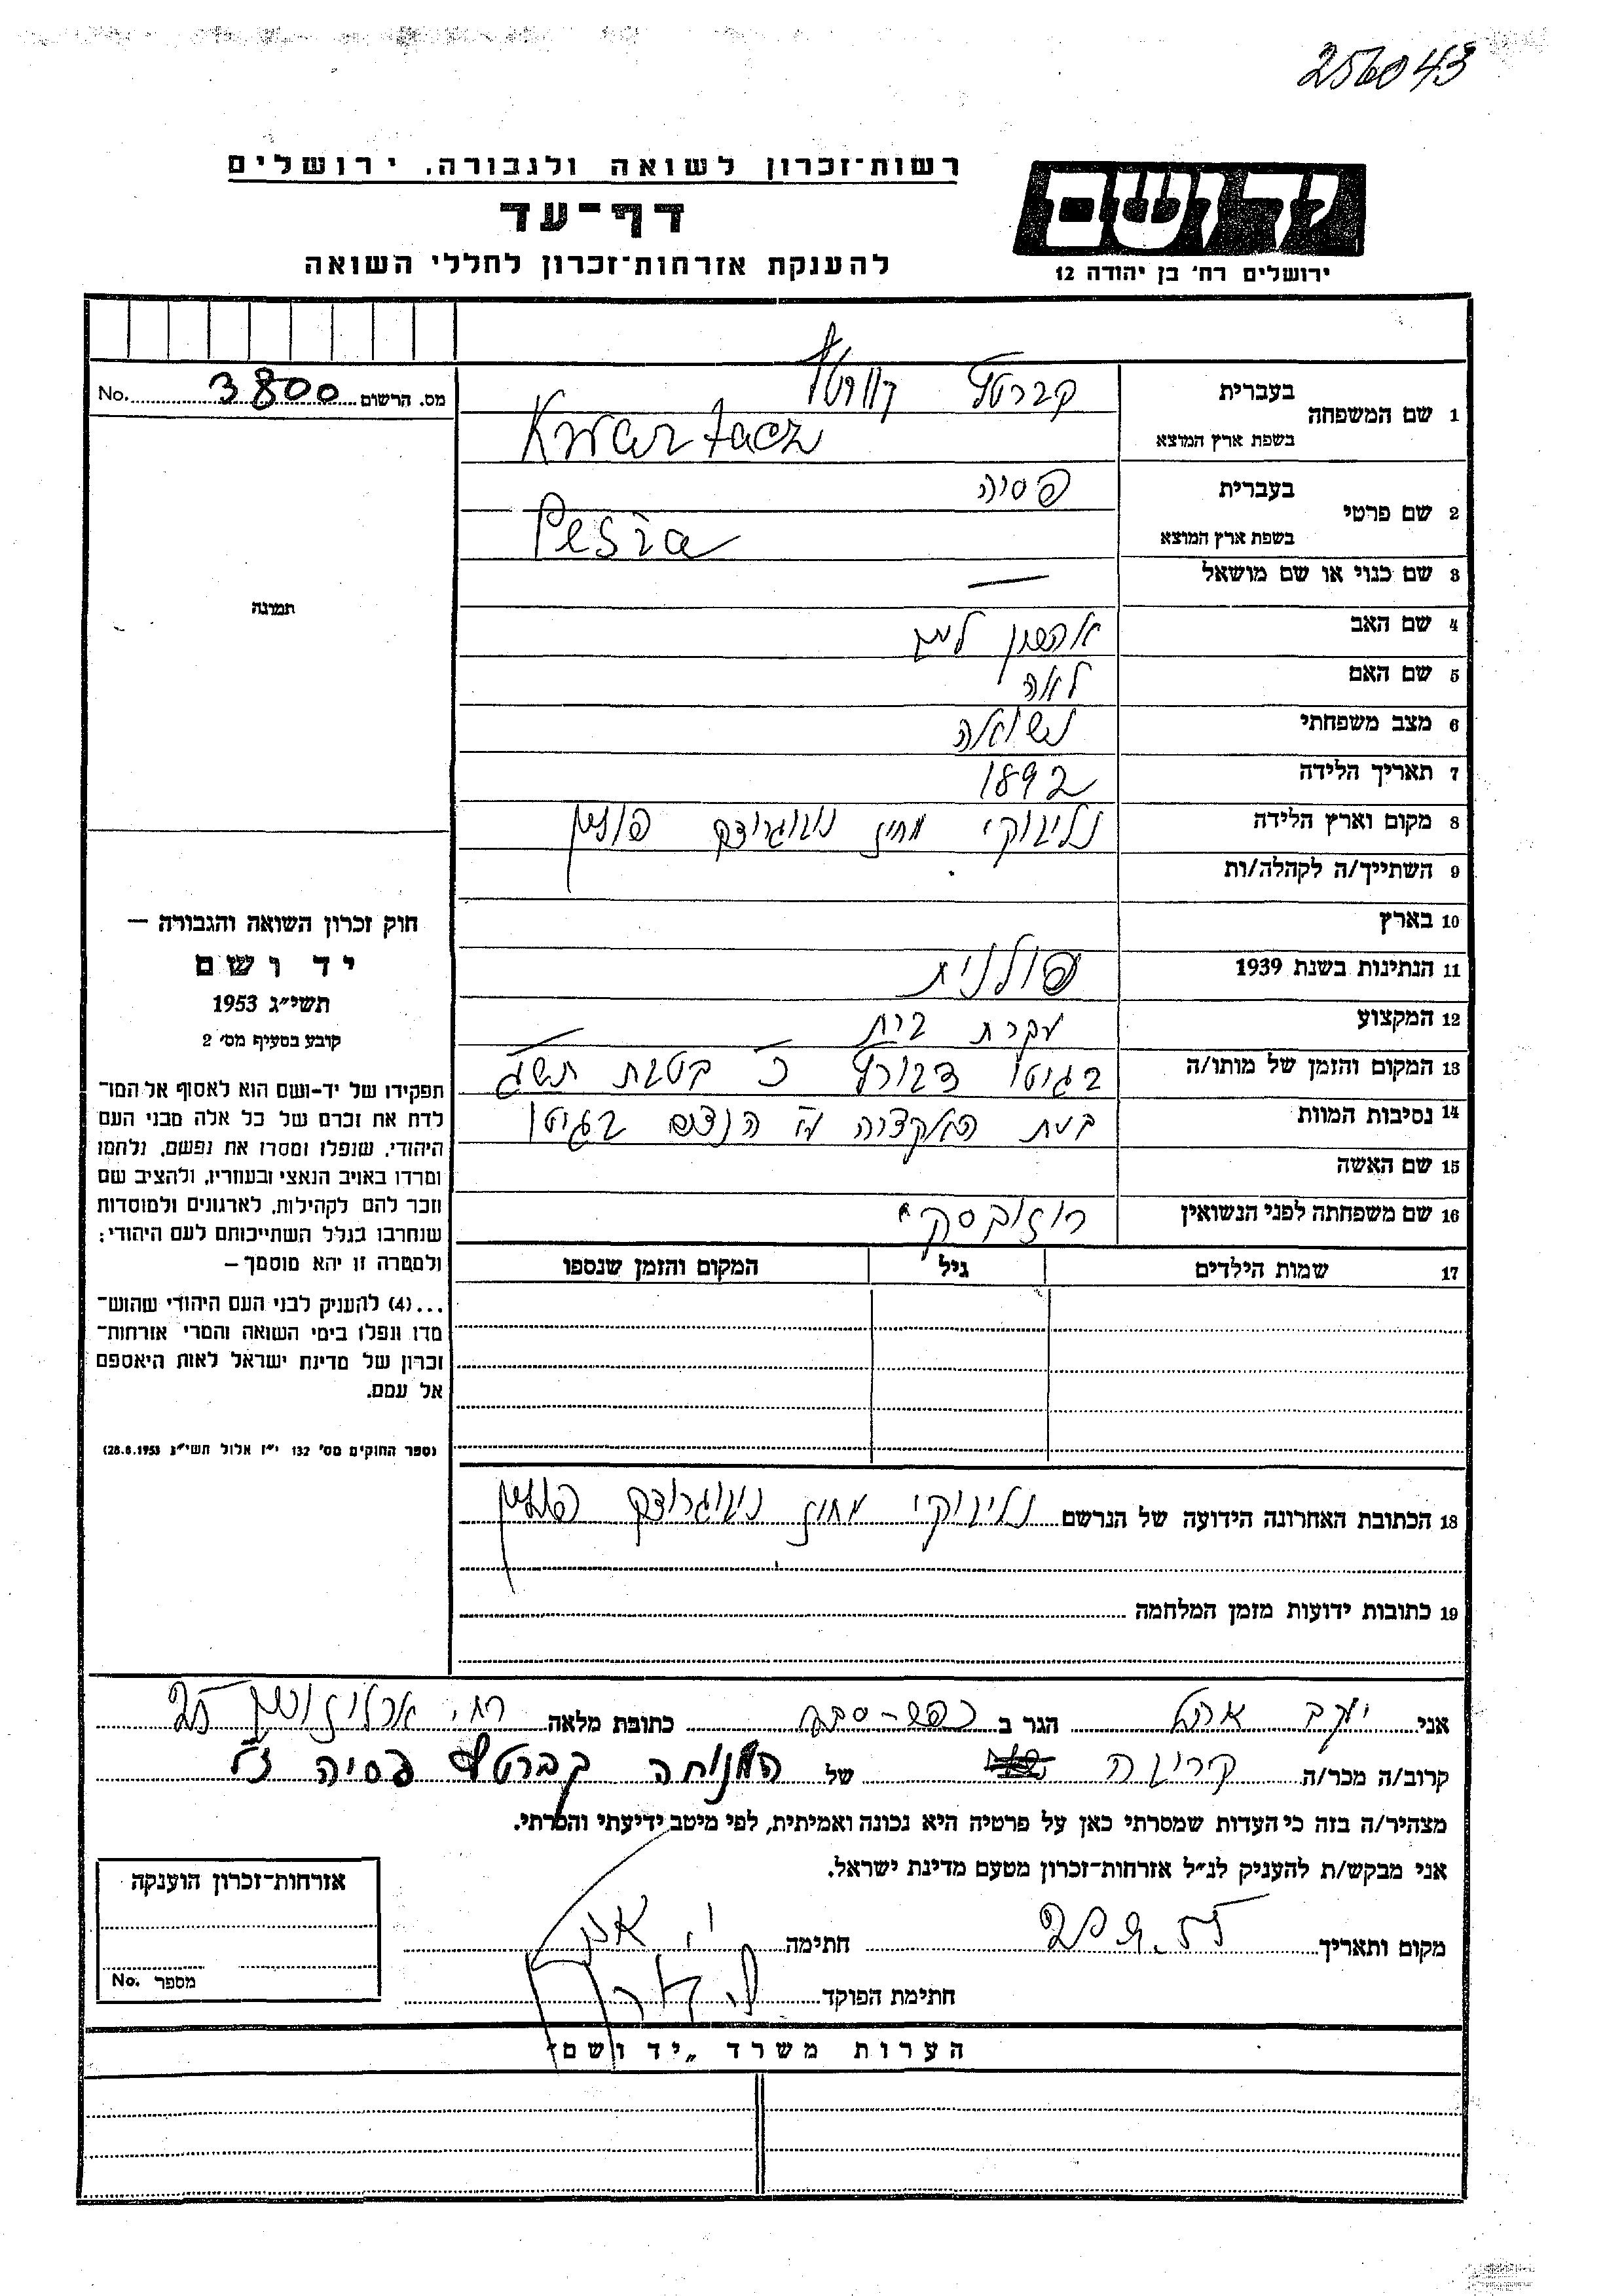 256043
ידושם
ירושלים רח' בן יהודה 12
רשות-זכרון לשואה ולגבורה, ירושלים
דף-עד
להענקת אזרחות-זכרון לחללי השואה
מס. הרשום 3800 No.
1 שם המשפחה
בעברית קברטץ
בשפת ארץ המוצא Kwartacz
2 שם פרטי
בעברית פסיה
בשפת ארץ המוצא Pesia
3 שם כנוי או שם מושאל —
4 שם האב
5 שם האם לאה
6 מצב משפחתי נשואה
7 תאריך הלידה 1892
8 מקום וארץ הלידה נליבוקי מחוז נובוגרודק פולין
9 השתייך/ה לקהלה/ות
10 בארץ
11 הנתינות בשנת 1939 פולנית
12 המקצוע עקרת בית
13 המקום והזמן של מותו/ה בגיטו דבורץ כ' בטבת תש"ג
14 נסיבות המוות בעת האקציה הנאצים בגיטו
15 שם האשה
16 שם משפחתה לפני הנשואין רוזובסקי
17 שמות הילדים גיל המקום והזמן שנספו
תמונה
חוק זכרון השואה והגבורה —
יד ושם
תשי"ג 1953
קובע בסעיף מס' 2
תפקידו של יד-ושם הוא לאסוף אל המו-
לדת את זכרם של כל אלה מבני העם
היהודי, שנפלו ומסרו את נפשם, נלחמו
ומרדו באויב הנאצי ובעוזריו, ולהציב שם
וזכר להם לקהילות, לארגונים ולמוסדות
שנחרבו בגלל השתייכותם לעם היהודי;
ולמטרה זו יהא מוסמך —
...(4) להעניק לבני העם היהודי שהוש-
מדו ונפלו בימי השואה והמרי אזרחות-
זכרון של מדינת ישראל לאות היאספם
אל עמם.
(ספר החוקים מס' 132 י"ז אלול תשי"ג 28.8.1953)
18 הכתובת האחרונה הידועה של הנרשם נליבוקי מחוז נובוגרודק פולין
19 כתובות ידועות מזמן המלחמה
אני יעקב הגר ב כפר-סבא כתובת מלאה רח' ארלוזורוב 25
קרוב/ה מכר/ה קרובה של המנוחה קברטץ פסיה ז"ל
מצהיר/ה בזה כי העדות שמסרתי כאן על פרטיה היא נכונה ואמיתית, לפי מיטב ידיעתי והכרתי.
אני מבקש/ת להעניק לנ"ל אזרחות-זכרון מטעם מדינת ישראל.
מקום ותאריך 20.9.55 חתימה
חתימת הפוקד
אזרחות-זכרון הוענקה
מספר No.
הערות משרד „יד ושם"